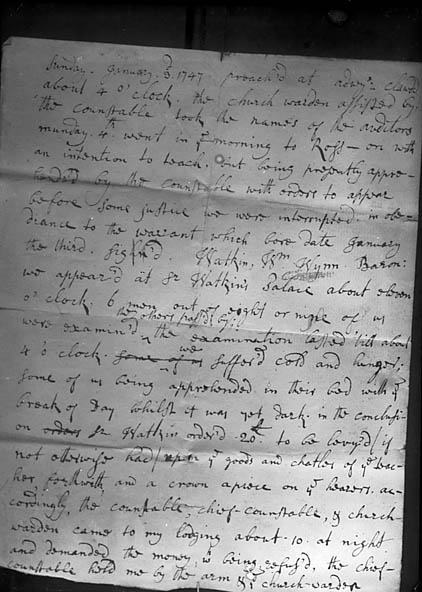 Sunday. January. 3. 1747 preach'd at
about 4 o'clock, the church warden assisted by
the counstable took the names of the auditors
munday. 4th went in ye morning to Ross — on with
an intention to teach. But being presently appre-
hended by the counstable with orders to appear
before some justice we were interrupted. in obe-
diance to the warrant which bore date January
the third. sign'd. Watkin. Wm Wynn Baron:
we appear'd at Sr Watkin's Palace about eleven
o'clock. 6 men out of eight or nine of us
were examin'd the others pass'd by: the examination lasted till about
4 o'clock. some of us we suffer'd cold and hunger:
some of us being apprehended in their bed with ye
break of Day whilst it was yet dark. in the conclusi-
on orders Sr Watkin order'd .20£. to be levy'd (if
not otherwise had) upon ye goods and chatles of ye teac-
her forthwith, and a crown apiece on ye hearers. ac-
cordingly, the counstable, chief-counstable, & church-
warden came to my lodging about .10. at night
and demanded the money, wc being refus'd, the chief-
counstable held me by the arm & ye church-warden